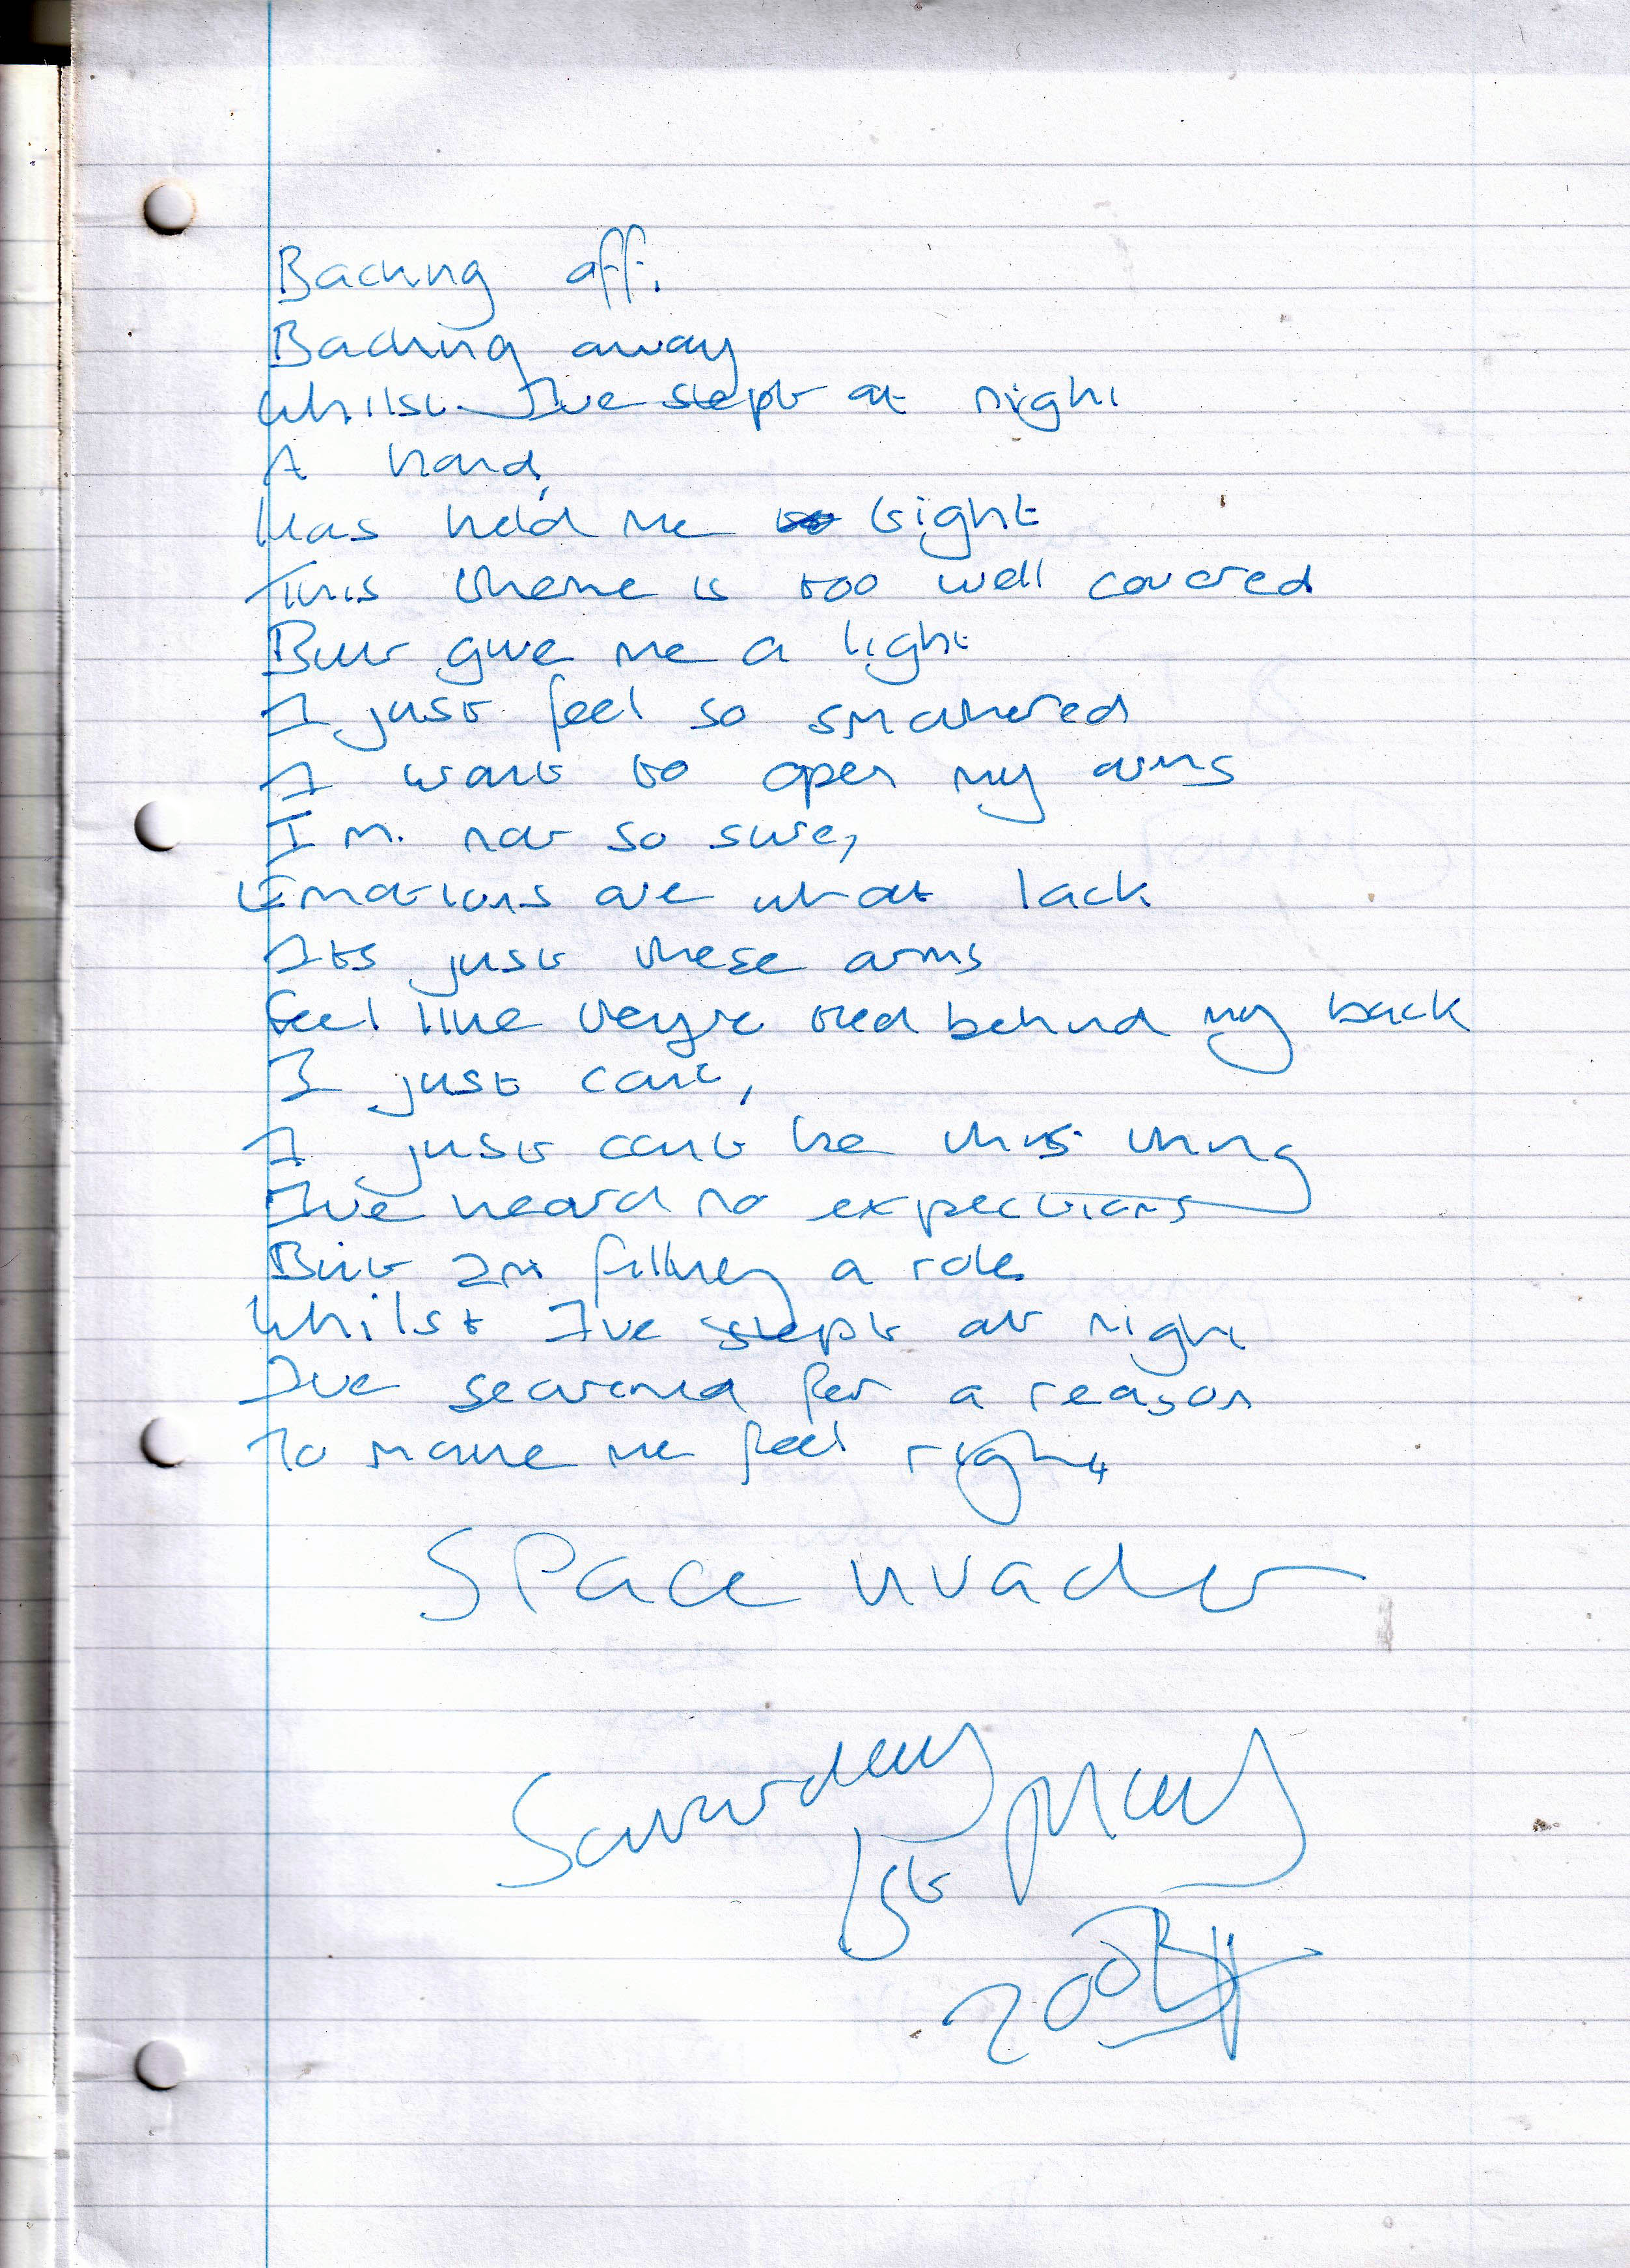 Backing off.
Backing away
Whilst I've slept at night
A hand,
Has held me tight
This theme is too well covered
But give me a light
I just feel so smothered
I want to open my arms
I'm not so sure,
Emotions are what lack
Its just these arms
feel like they're tied behind my back
I just can't,
I just can't be this thing
I've heard no expections
But I'm filling a role
Whilst I've slept at night
I've searched for a reason
To make me feel right
Space invader
Saturday
1st May